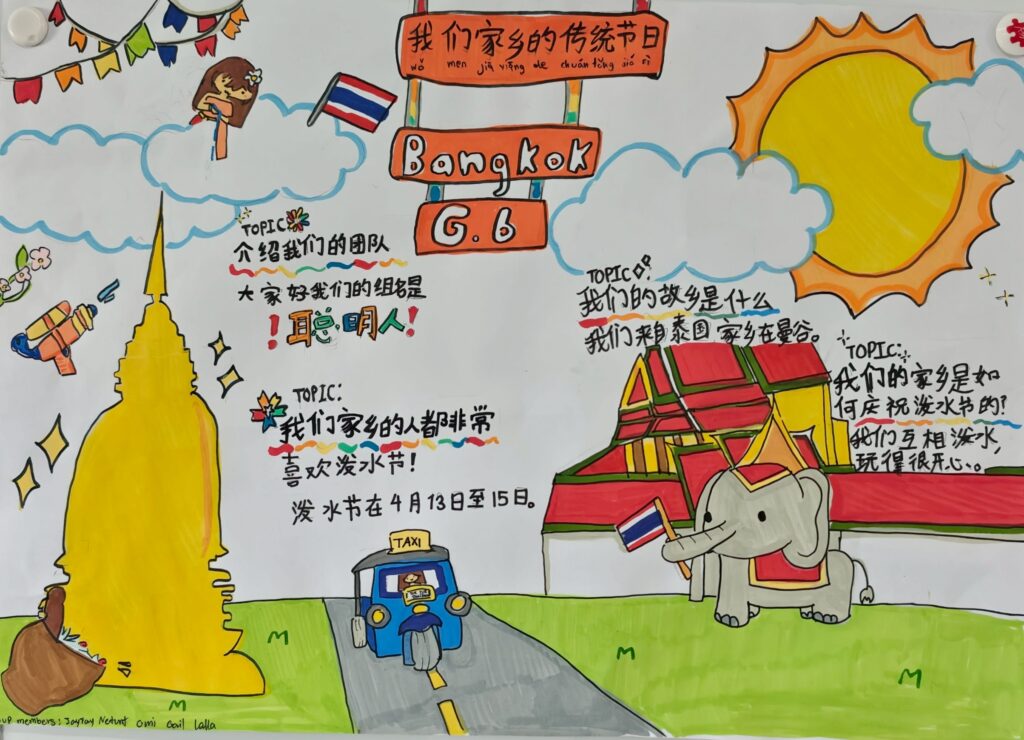 我们家乡的传统节日
wǒ men jiā xiāng de chuán tǒng jié rì
Bangkok
G.6
TOPIC
介绍我们的团队
大家好我们的组名是
！聪明人！
TOPIC:
我们的故乡是什么
我们来自泰国 家乡在曼谷。
TOPIC:
我们的家乡是如
何庆祝泼水节的？
我们互相泼水，
玩得很开心。
TOPIC:
我们家乡的人都非常
喜欢泼水节！
泼水节在4月13日至15日。
TAXI
up members: Jayjay Neturt Omi Gail Lalla